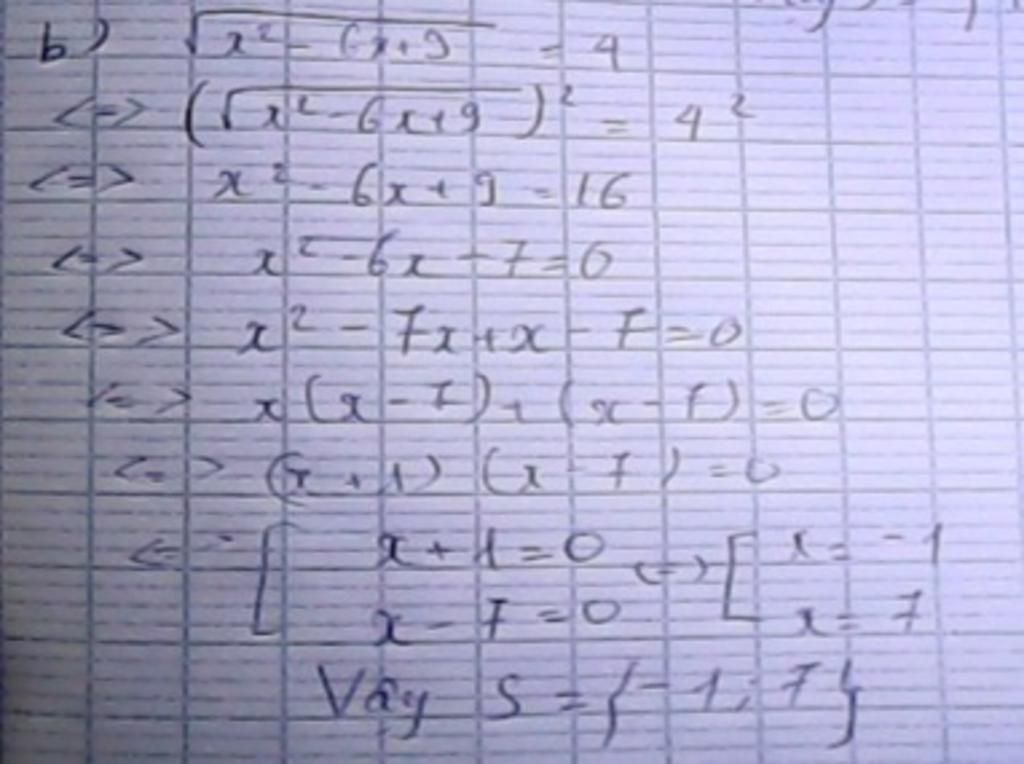 b) √(x² - 6x+9) = 4
<=> (√(x²-6x+9))² = 4²
<=> x² - 6x + 9 = 16
<=> x² - 6x - 7 = 0
<=> x² - 7x + x - 7 = 0
<=> x(x - 7) + (x - 7) = 0
<=> (x + 1) (x - 7) = 0
<=> [ x + 1 = 0 <=> [ x = -1
x - 7 = 0 x = 7
Vậy S = {-1; 7}